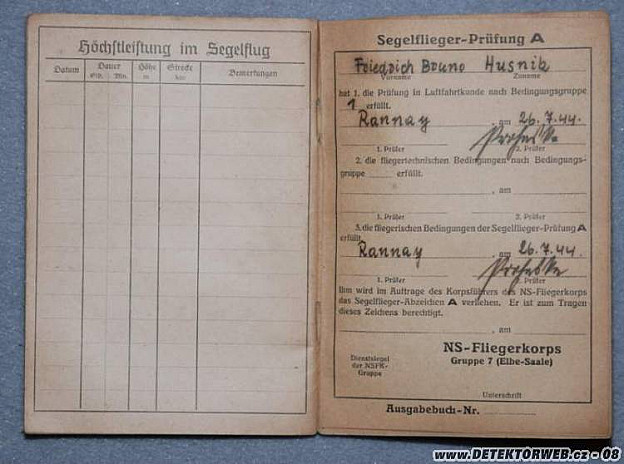 Höchstleistung im Segelflug
Datum Dauer Höhe Strecke Bemerkungen
Stb. Min. m km
Segelflieger-Prüfung A
Friedrich Bruno Husnik
Vorname Zuname
hat 1. die Prüfung in Luftfahrtkunde nach Bedingungsgruppe
1 erfüllt.
Rannay, am 26.7.44.
1. Prüfer 2. Prüfer
2. die fliegertechnischen Bedingungen nach Bedingungs-
gruppe erfüllt.
, am
1. Prüfer 2. Prüfer
3. die fliegerischen Bedingungen der Segelflieger-Prüfung A
erfüllt.
Rannay, am 26.7.44.
1. Prüfer 2. Prüfer
Ihm wird im Auftrage des Korpsführers des NS-Fliegerkorps
das Segelflieger-Abzeichen A verliehen. Er ist zum Tragen
dieses Zeichens berechtigt.
, am
NS-Fliegerkorps
Gruppe 7 (Elbe-Saale)
Dienstsiegel
der NSFK-
Gruppe
Unterschrift
Ausgabebuch-Nr.
www.DETEKTORWEB.cz - 08